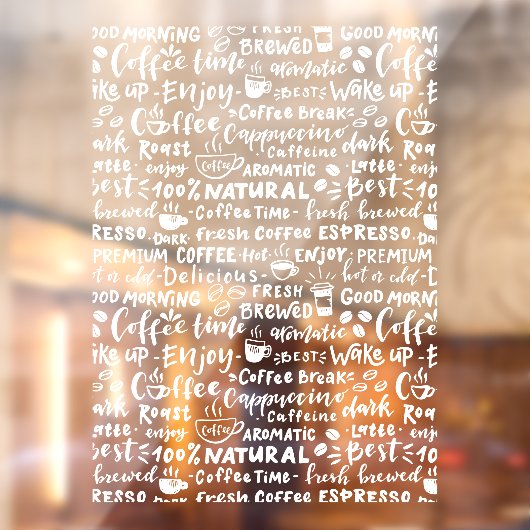 FRESH
GOOD MORNING BREWED GOOD MORNIN
Coffee time aromatic Coffee
ke up - Enjoy - BEST Wake up - E
Coffee Break
Coffee Cappuccino dark Co
ark Roast Caffeine Roa
Latte · enjoy coffee AROMATIC · Latte · enj
Best 100% NATURAL Best 100%
brewed - Coffee Time - fresh brewed
RESSO · DARK · fresh Coffee ESPRESSO · DARK
PREMIUM COFFEE · Hot · ENJOY PREMIUM
hot or cold - Delicious - hot or cold - D
GOOD MORNING FRESH GOOD MORNIN
BREWED
Coffee time aromatic Coffee
ke up - Enjoy - BEST Wake up - E
Coffee Break
Coffee Cappuccino dark Co
ark Roast Caffeine Roa
Latte · enjoy coffee AROMATIC · Latte · enj
Best 100% NATURAL Best 100%
brewed - Coffee Time - fresh brewed
RESSO · DARK · fresh Coffee ESPRESSO · DARK